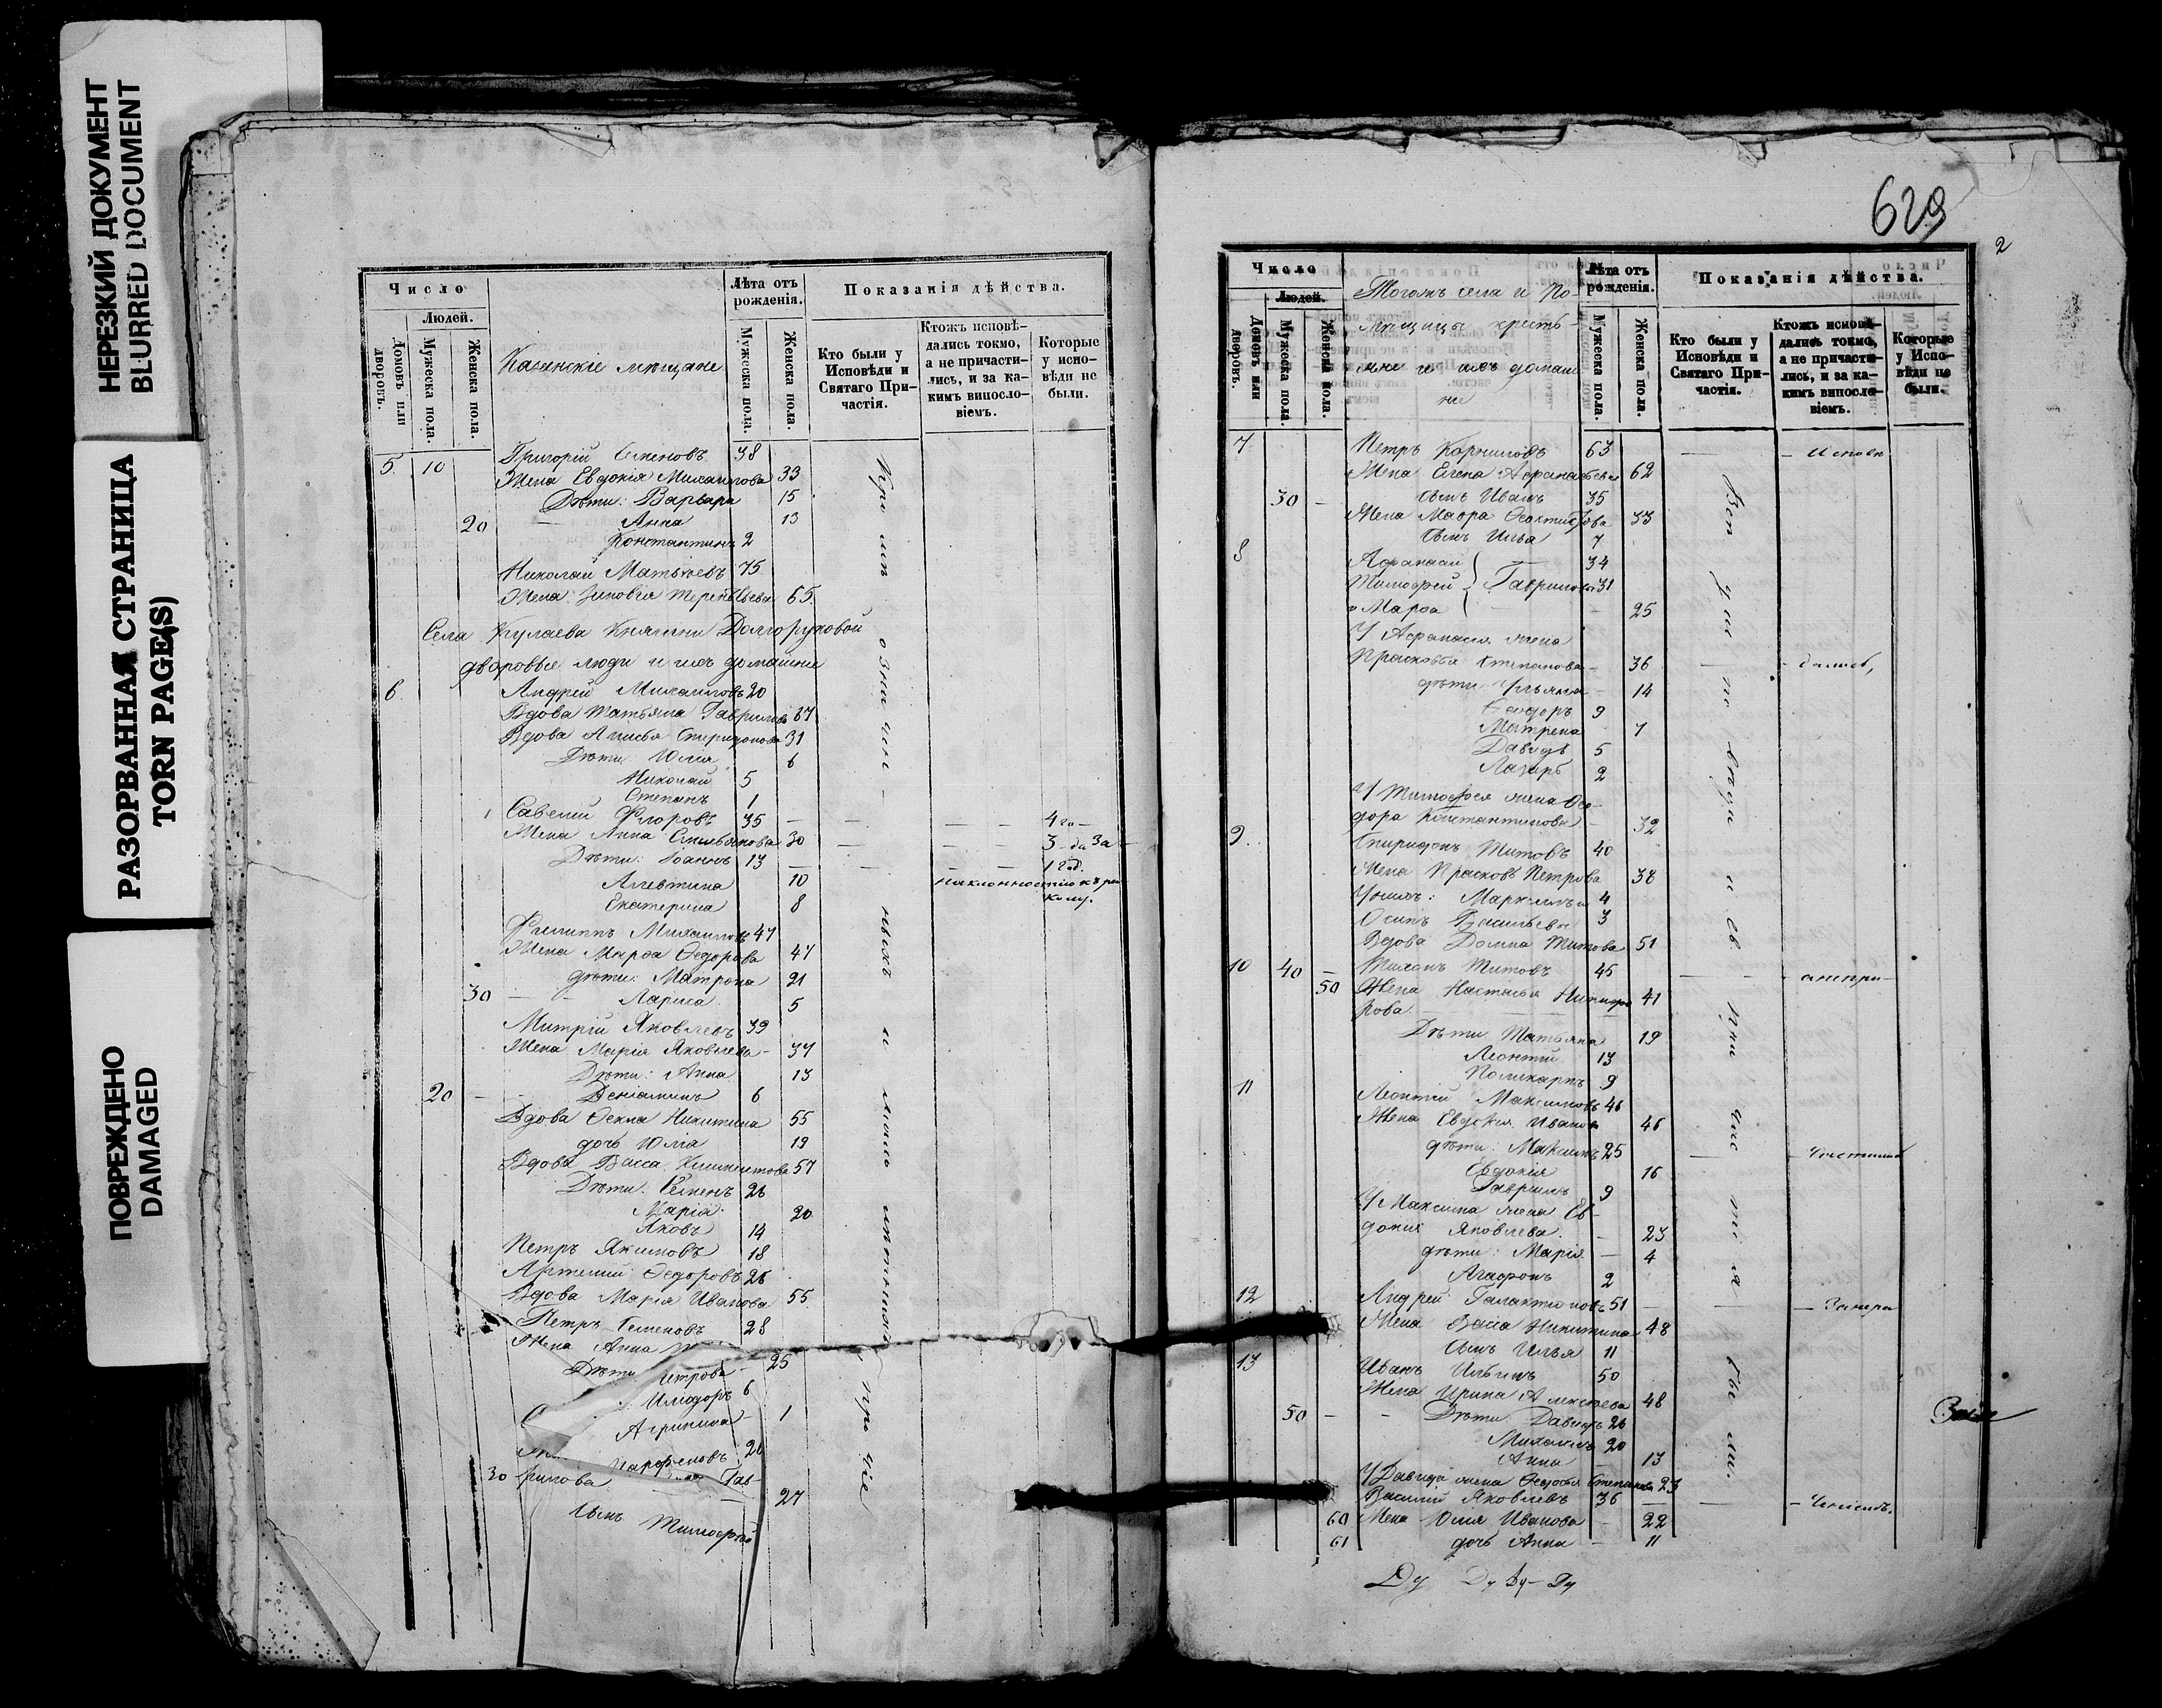 НЕРЕЗКИЙ ДОКУМЕНТ
BLURRED DOCUMENT
РАЗОРВАННАЯ СТРАНИЦА
TORN PAGE(S)
ПОВРЕЖДЕНО
DAMAGED
Число
Людей.
Домовъ или дворовъ.
Мужеска пола.
Женска пола.
Казанскіе мѣщане
Лѣта отъ рожденія.
Мужеска пола.
Женска пола.
Показанія дѣйства.
Кто были у Исповѣди и Святаго Причастія.
Ктожъ исповѣдались токмо, а не причастились, и за какимъ винословіемъ.
Которые у исповѣди не были.
5 10 Григорій Семеновъ 38
Жена Евдокія Михаилова 33
Дѣти: Варвара 15
20 — Анна 13
Константинъ 2
Николай Матвѣевъ 75
Жена Зиновія Терентьева 65
Села Кулаева Княгини Долгоруковой
дворовые люди и ихъ домашніе
6 Андрей Михаиловъ 20
Вдова Татьяна Гаврилова 67
Вдова Анисья Спиридонова 31
Дѣти: Юлія 6
Николай 5
Степанъ 1
Савелій Флоровъ 35 — — — — 4 го —
Жена Анна Емельянова 30 — — — 3 — да За —
Дѣти: Іоаннъ 13 — — — — 1 год.
Алевтина 10 наклонностію къ рас
Екатерина 8 колу.
Филиппъ Михаиловъ 47
Жена Марѳа Ѳедорова 47
дѣти: Матрона 21
30 — — Лариса 5
Митрій Яковлевъ 39
Жена Марія Яковлева — 37
Дѣти: Анна 13
20 — — Веніаминъ 6
Вдова Ѳекла Никитина 55
дочь Юлія 19
Вдова Васса Климентова 57
Дѣти: Семенъ 26
Марія 20
Яковъ 14
Петръ Якимовъ 18
Артемій Ѳедоровъ 26
Вдова Марія Иванова 55
Петръ Семеновъ 28
Жена Анна
Петрова — 25
Дѣти
Илиодоръ 6
Агрипина — 1
Парфеновъ 26
Гав-
30 рилова — — 27
сынъ Тимофей
629
2
Число
Людей.
Домовъ или дворовъ.
Мужеска пола.
Женска пола.
Тогожъ села и по-
мѣщицы кресть-
яне и ихъ домаш
ніе
Лѣта отъ рожденія.
Мужеска пола.
Женска пола.
Показанія дѣйства.
Кто были у Исповѣди и Святаго Причастія.
Ктожъ исповѣдались токмо, а не причастились, и за какимъ винословіемъ.
Которые у Исповѣди не были.
7 Петръ Корниловъ 63 — — Исповѣ
Жена Елена Афанасьева 62
30 — сынъ Иванъ 35
Жена Мавра Ѳеоктистова 33
сынъ Илья 7
8 Афанасій 34
Тимофей Гавриловы 31
и Марѳа — 25
У Афанасія жена
Прасковья Степанова — 36 — — дались,
дѣти Ульяна — 14
Сидоръ 9
Матрена 7
Давидъ 5
Лазарь 2
У Тимофея жена Ѳео-
дора Константинова — 32
9 Спиридонъ Титовъ 40
Жена Прасковья Петрова 38
У нихъ: 4
Осипъ Васильевы 3
Вдова Домна Титова 51
10 40 — Тихонъ Титовъ 45 — — — а непри —
50 Жена Настасья Никифо 41
рова — —
Дѣти Татьяна 19
Леонтій 13
Поликарпъ 9
11 Леонтій Максимовъ 46
Жена Евдокія Иванова 46
дѣти: Максимъ 25 — — частились
Евдокія 16
Гаврилъ 9
У Максима жена Ев-
докія Яковлева. — 23
дѣти: Марія — 4
Агафонъ 2
12 Андрей Галактіоновъ 51 — — —
Жена Васса Никитина 48
сынъ Илья 11
13 Иванъ Ильинъ 50
Жена Ирина Алексѣева 48
50 — — Дѣти Давидъ 26
Михаилъ 20
Анна — 13
У Давида жена Ѳедосья Степанова 23
Василій Яковлевъ 36 — — —
60 Жена Юлія Иванова — 22
61 дочь Анна — 11